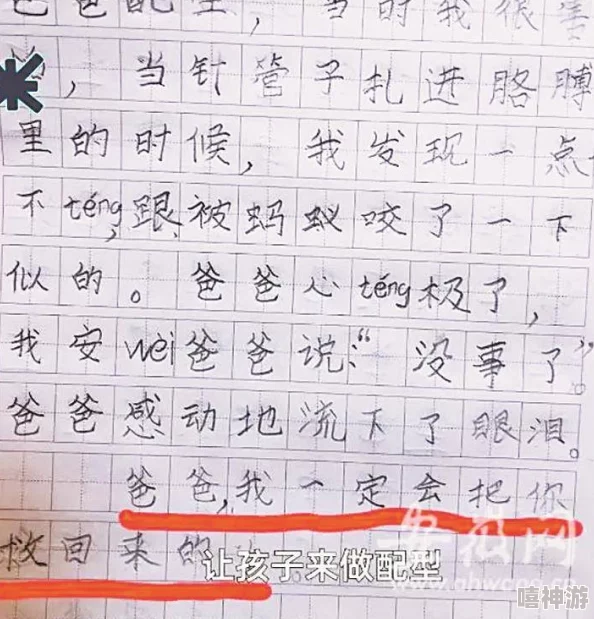 爸爸配型，当时我很害
，当针管子扎进胳膊
里的时候，我发现一点
不téng，跟被蚂蚁咬了一下
似的。爸爸心téng极了，
我安wèi爸爸说：“没事了”。
爸爸感动地流下了眼泪。
爸爸，我一定会把你
救回来的
让孩子来做配型
安徽网
www.ahwang.cn
嘻神游